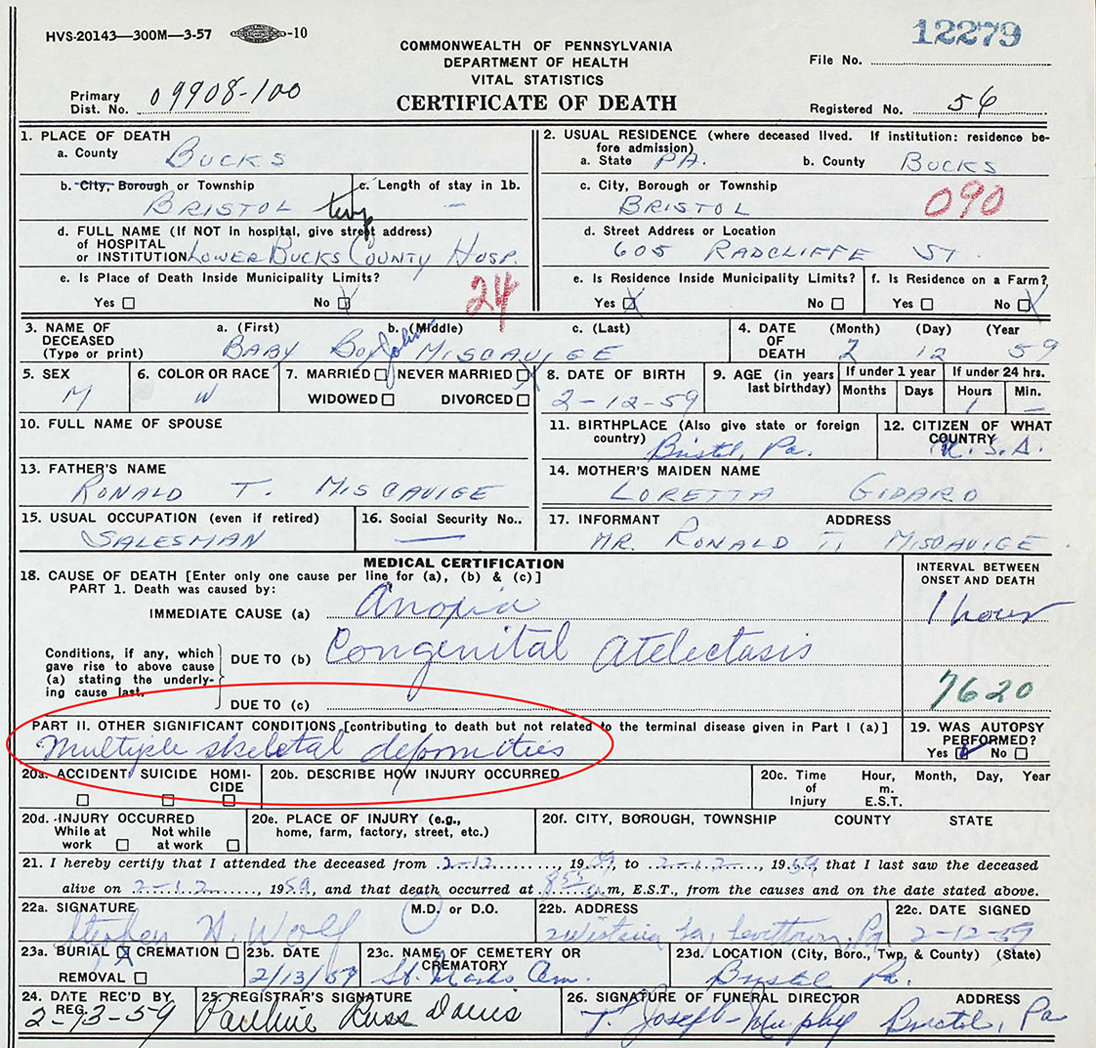 HVS-20143—300M—3-57 -10
12279
COMMONWEALTH OF PENNSYLVANIA
DEPARTMENT OF HEALTH
VITAL STATISTICS
CERTIFICATE OF DEATH
File No.
Primary Dist. No. 09908-100
Registered No. 56
1. PLACE OF DEATH
a. County BUCKS
2. USUAL RESIDENCE (where deceased lived. If institution: residence before admission)
a. State PA. b. County BUCKS
b. City, Borough or Township BRISTOL twp
c. Length of stay in 1b. —
c. City, Borough or Township BRISTOL
090
d. FULL NAME (If NOT in hospital, give street address) of HOSPITAL or INSTITUTION LOWER BUCKS COUNTY HOSP.
d. Street Address or Location
605 RADCLIFFE ST.
e. Is Place of Death Inside Municipality Limits?
Yes No
24
e. Is Residence Inside Municipality Limits?
Yes X No
f. Is Residence on a Farm?
Yes No X
3. NAME OF DECEASED (Type or print)
a. (First) b. (Middle) c. (Last)
BABY BOY John MISCAVIGE
4. DATE OF DEATH (Month) (Day) (Year
2 12 59
5. SEX M
6. COLOR OR RACE W
7. MARRIED NEVER MARRIED X
WIDOWED DIVORCED
8. DATE OF BIRTH
2-12-59
9. AGE (in years last birthday)
If under 1 year If under 24 hrs.
Months Days Hours Min.
1 —
10. FULL NAME OF SPOUSE
11. BIRTHPLACE (Also give state or foreign country)
Bristol, Pa.
12. CITIZEN OF WHAT COUNTRY
U.S.A.
13. FATHER'S NAME
RONALD T. MISCAVIGE
14. MOTHER'S MAIDEN NAME
LORETTA GIDARO
15. USUAL OCCUPATION (even if retired)
SALESMAN
16. Social Security No..
—
17. INFORMANT ADDRESS
MR. RONALD T. MISCAVIGE
MEDICAL CERTIFICATION
18. CAUSE OF DEATH [Enter only one cause per line for (a), (b) & (c)]
PART 1. Death was caused by:
INTERVAL BETWEEN ONSET AND DEATH
IMMEDIATE CAUSE (a) Anoxia
1 hour
Conditions, if any, which gave rise to above cause (a) stating the underlying cause last.
DUE TO (b) Congenital Atelectasis
DUE TO (c)
7620
PART II. OTHER SIGNIFICANT CONDITIONS [contributing to death but not related to the terminal disease given in Part I (a)]
Multiple skeletal deformities
19. WAS AUTOPSY PERFORMED?
Yes No
20a. ACCIDENT SUICIDE HOMICIDE
20b. DESCRIBE HOW INJURY OCCURRED
20c. Time of Injury Hour, Month, Day, Year
m. E.S.T.
20d. INJURY OCCURRED
While at work Not while at work
20e. PLACE OF INJURY (e.g., home, farm, factory, street, etc.)
20f. CITY, BOROUGH, TOWNSHIP COUNTY STATE
21. I hereby certify that I attended the deceased from 2-12, 1959, to 2-12, 1959, that I last saw the deceased
alive on 2-12, 1959, and that death occurred at m, E.S.T., from the causes and on the date stated above.
22a. SIGNATURE M.D. or D.O.
Stephen H. Wolf
22b. ADDRESS
Levittown, Pa
22c. DATE SIGNED
2-12-59
23a. BURIAL X CREMATION
REMOVAL
23b. DATE
2/13/59
23c. NAME OF CEMETERY OR CREMATORY
St. Marks Cem.
23d. LOCATION (City, Boro., Twp. & County) (State)
Bristol Pa.
24. DATE REC'D BY REG.
2-13-59
25. REGISTRAR'S SIGNATURE
Pauline Russ Davis
26. SIGNATURE OF FUNERAL DIRECTOR ADDRESS
T. Joseph Murphy Bristol, Pa